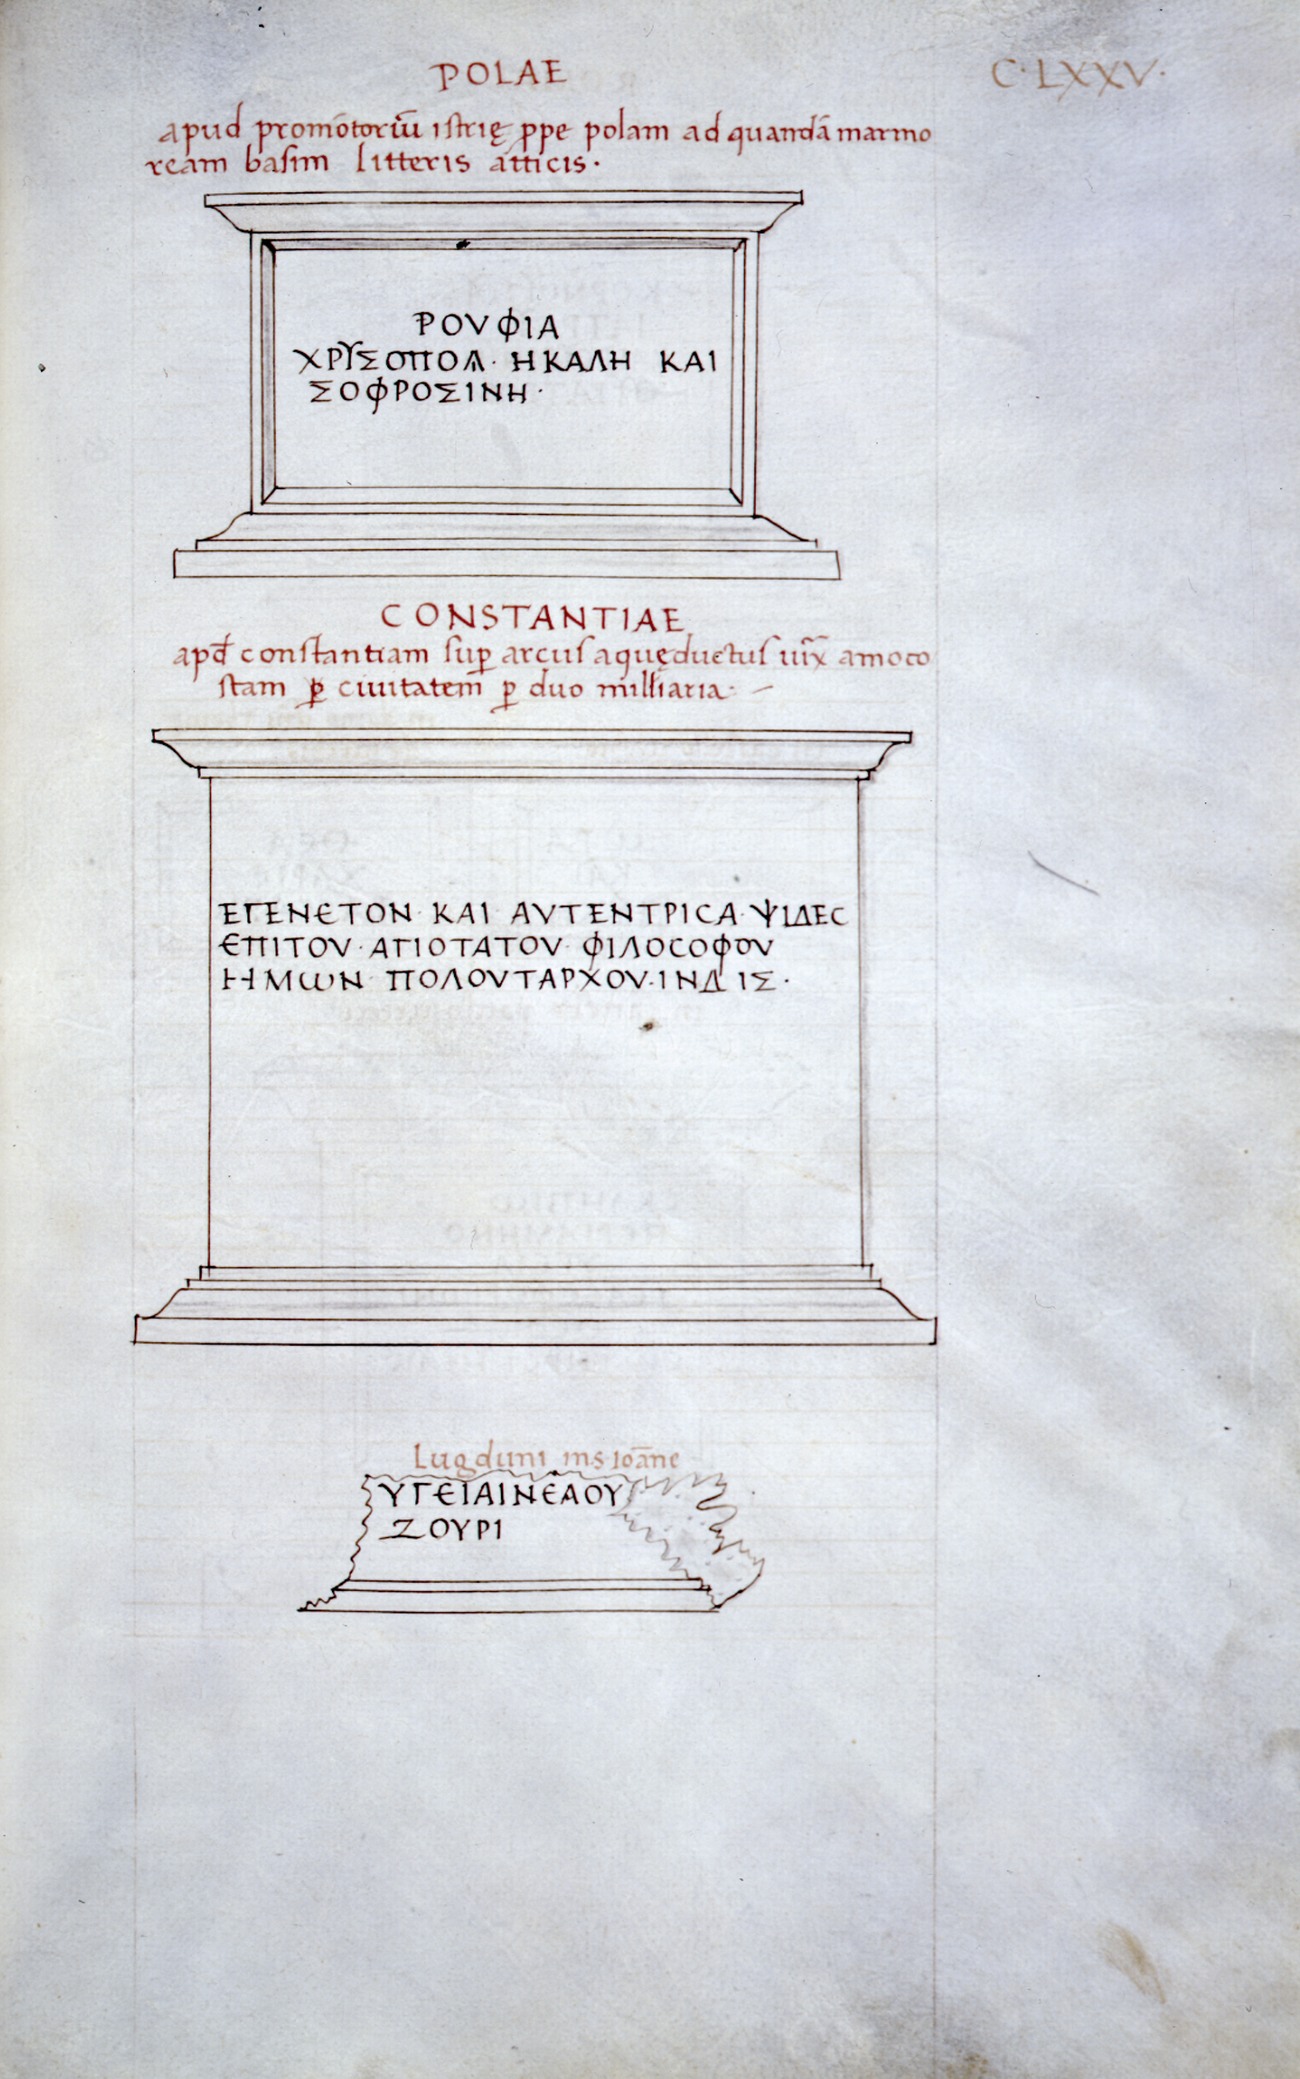 POLAE
C·LXXV·
apud promōtoriū istrię ꝓpe polam ad quandā marmo
ream basim litteris atticis·
ΡΟΥΦΙΑ
ΧΡΥΣΟΠΟΛ· ΗΚΑΛΗ ΚΑΙ
ΣΟΦΡΟΣΙΝΗ·
CONSTANTIAE
constantiam suꝑ arcus aquęductus amoco
stam ꝑ ciuitatem ꝑ duo milliaria·
ΕΓΕΝΕΤΟΝ ΚΑΙ ΑΥΤΕΝΤΡΙCΑ·ΨΙΔΕC
ΕΠΙΤΟΥ·ΑΓΙΟΤΑΤΟΥ· ΦΙΛΟCΟΦΟΥ
ΗΜωΝ ΠΟΛΟΥΤΑΡΧΟΥ·ΙΝΔ ΙΣ·
Lugduni in s·ioāne
ΥΓΕΙΑΙΝΕΑΟΥ
ΖΟΥΡΙ